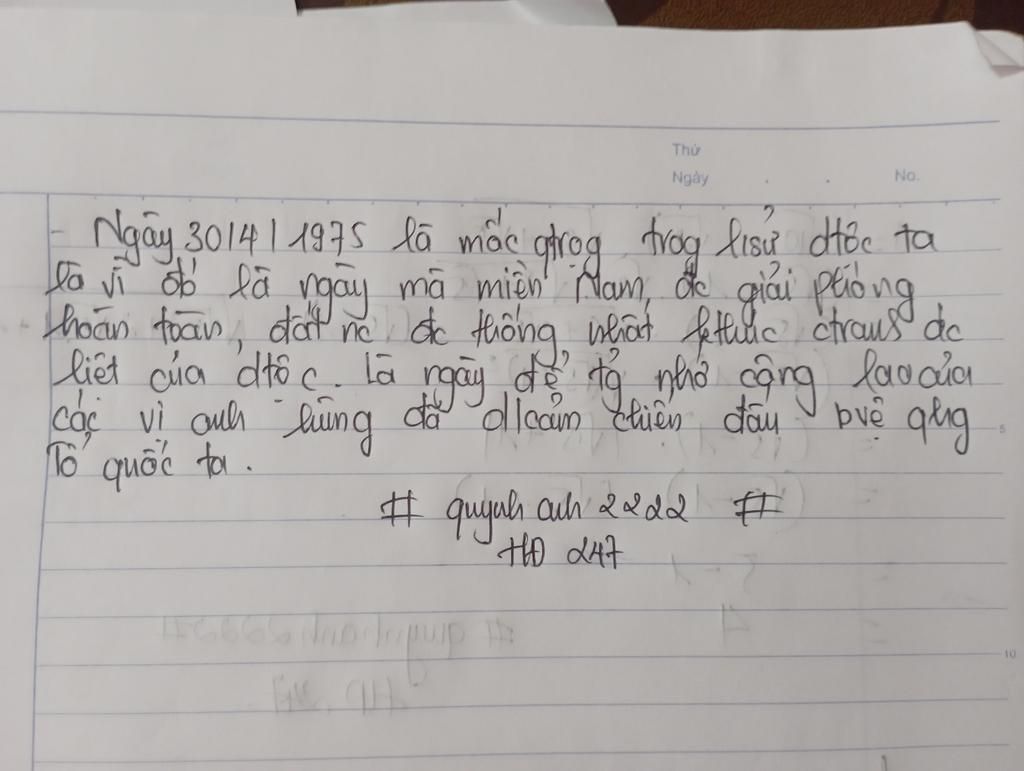 Thứ
Ngày . . No.
- Ngày 30/4/1975 là mốc qtrọg trog lisử dtộc ta
là vì đó là ngày mà miền Nam, đc giải phóng
hoàn toàn, đất nc đc thống nhất kthúc ctranh
liệt của dtộc. Là ngày để tg nhớ công lao của
các vì anh hùng đã dũcảm chiến đấu bvệ qhg
Tổ quốc ta.
# quynh anh 2222 #
HĐ 247
5
10